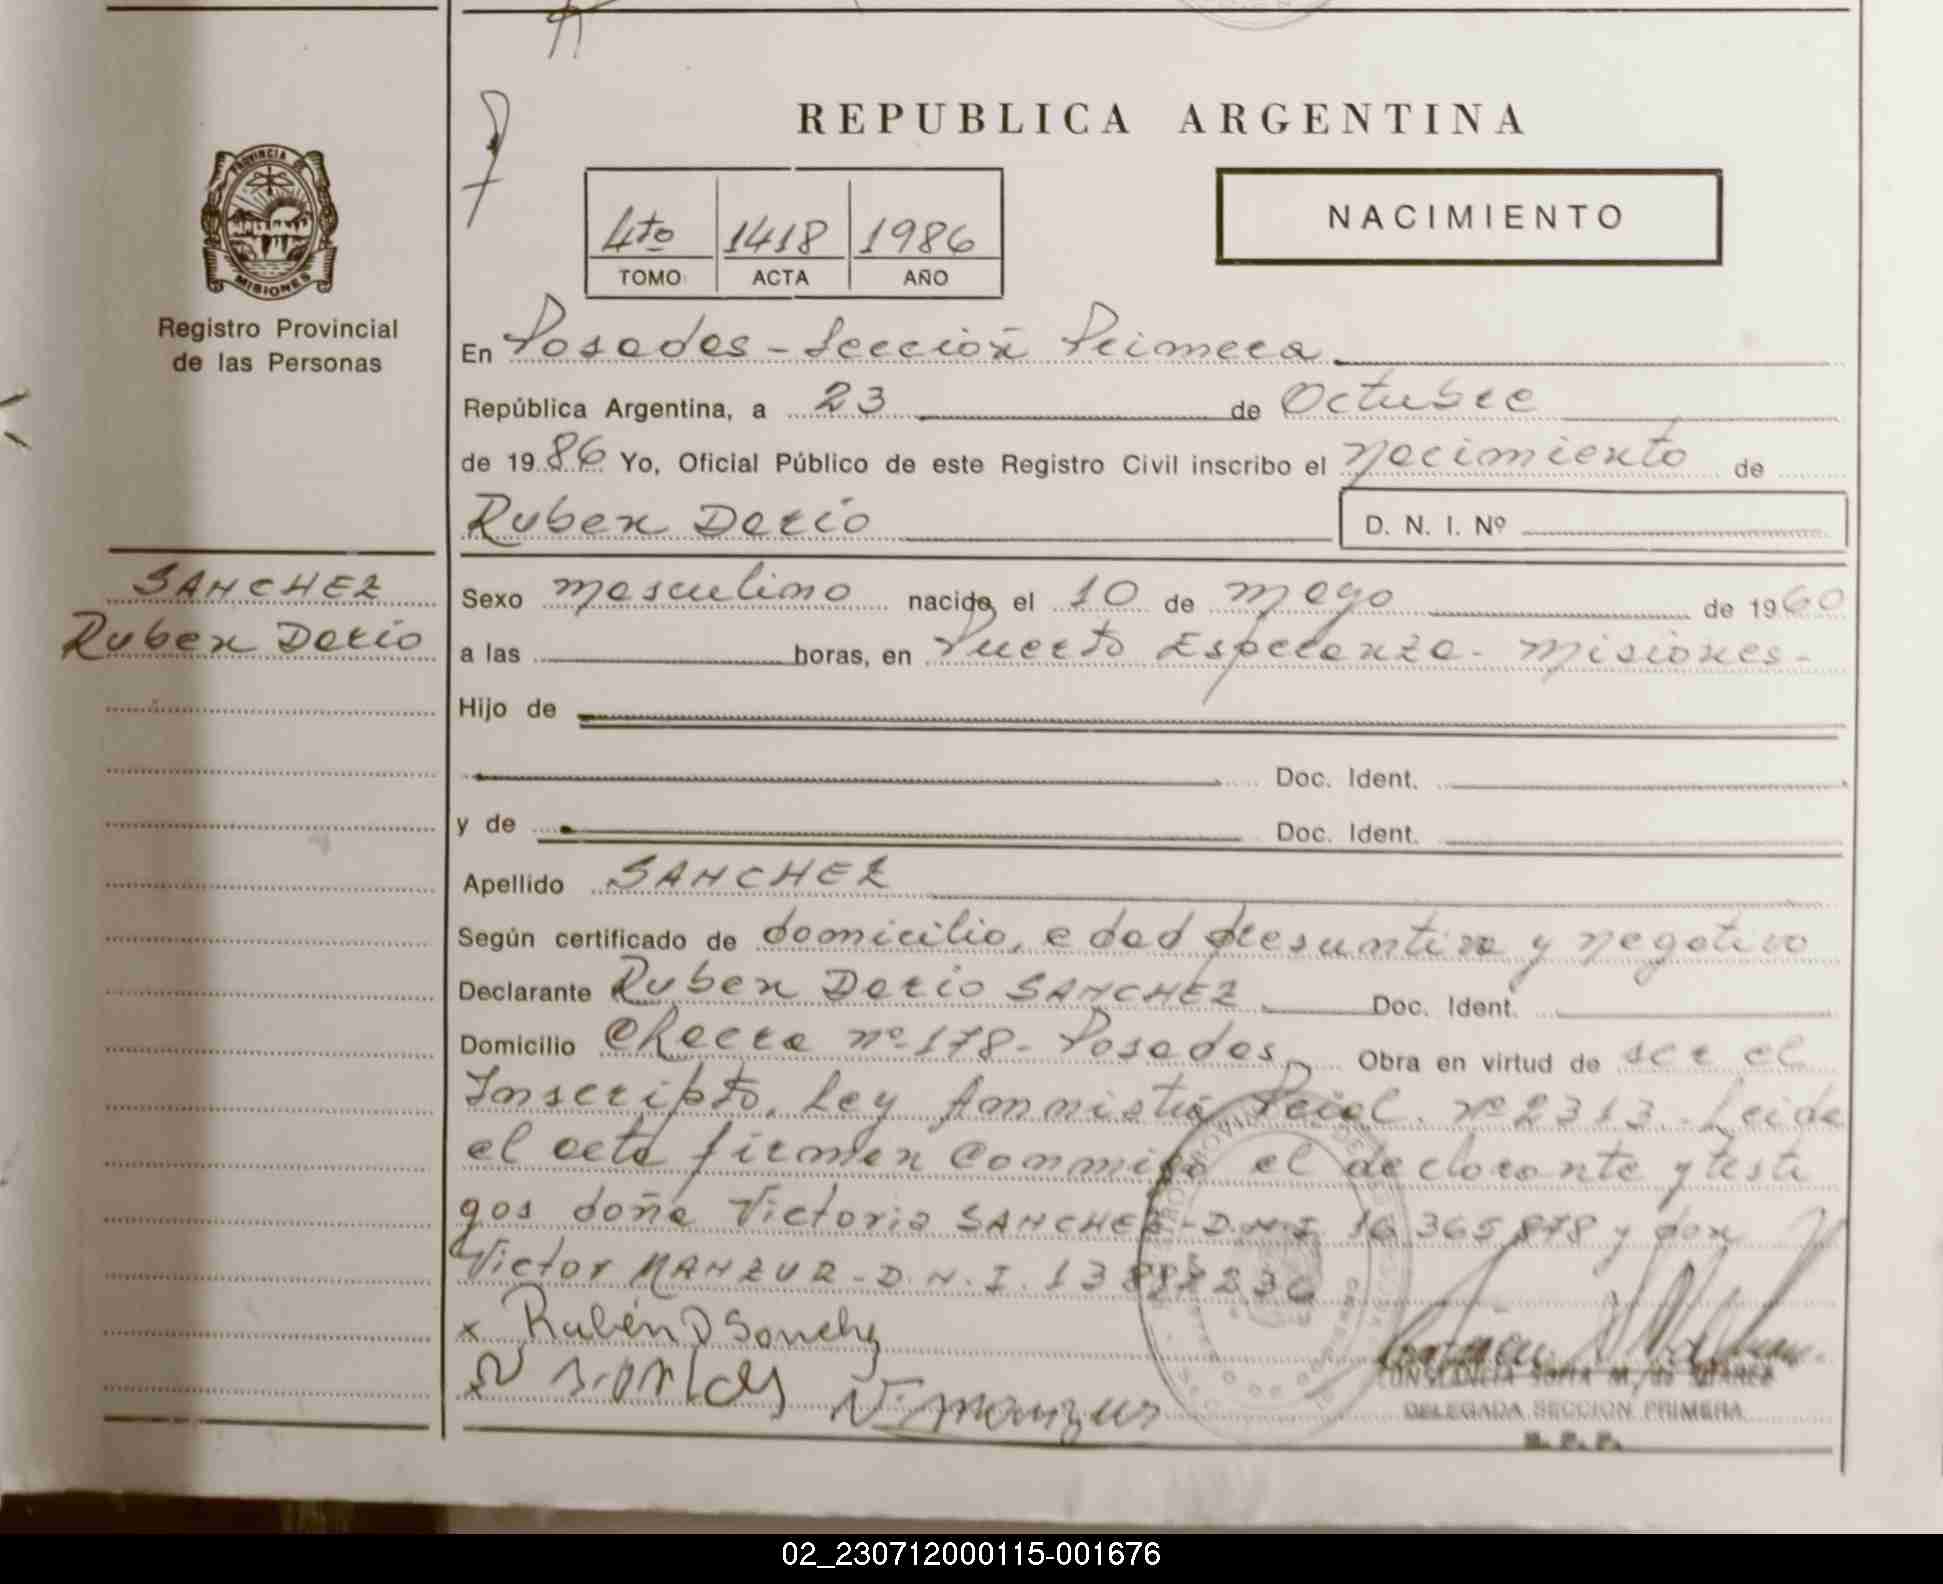 REPUBLICA ARGENTINA
PROVINCIA DE
MISIONES
Registro Provincial
de las Personas
4to 1418 1986
TOMO ACTA AÑO
NACIMIENTO
En Posadas - Sección Primera
República Argentina, a 23 de Octubre
de 1986 Yo, Oficial Público de este Registro Civil inscribo el nacimiento de
Ruben Dario D. N. I. Nº
SANCHEZ
Ruben Dario
Sexo masculino nacido el 10 de mayo de 1960
a las horas, en Puerto Esperanza - Misiones -
Hijo de
Doc. Ident.
y de Doc. Ident.
Apellido SANCHEZ
Según certificado de domicilio, edad presuntiva y negativo
Declarante Ruben Dario SANCHEZ Doc. Ident.
Domicilio Chacra nº 178 - Posadas Obra en virtud de ser el
Inscripto. Ley Ammistia Pcial. nº 2313. Leida
el acta firman conmigo el declarante y testi
gos doña Victoria SANCHEZ - D.N.I 16 365 878 y don
Victor MANZUR - D.N.I. 13
x Rubén D Sanchez
V. Manzur
CONSTANCIA SOFIA M. de SUAREZ
DELEGADA SECCION PRIMERA
R. P. P.
02_230712000115-001676